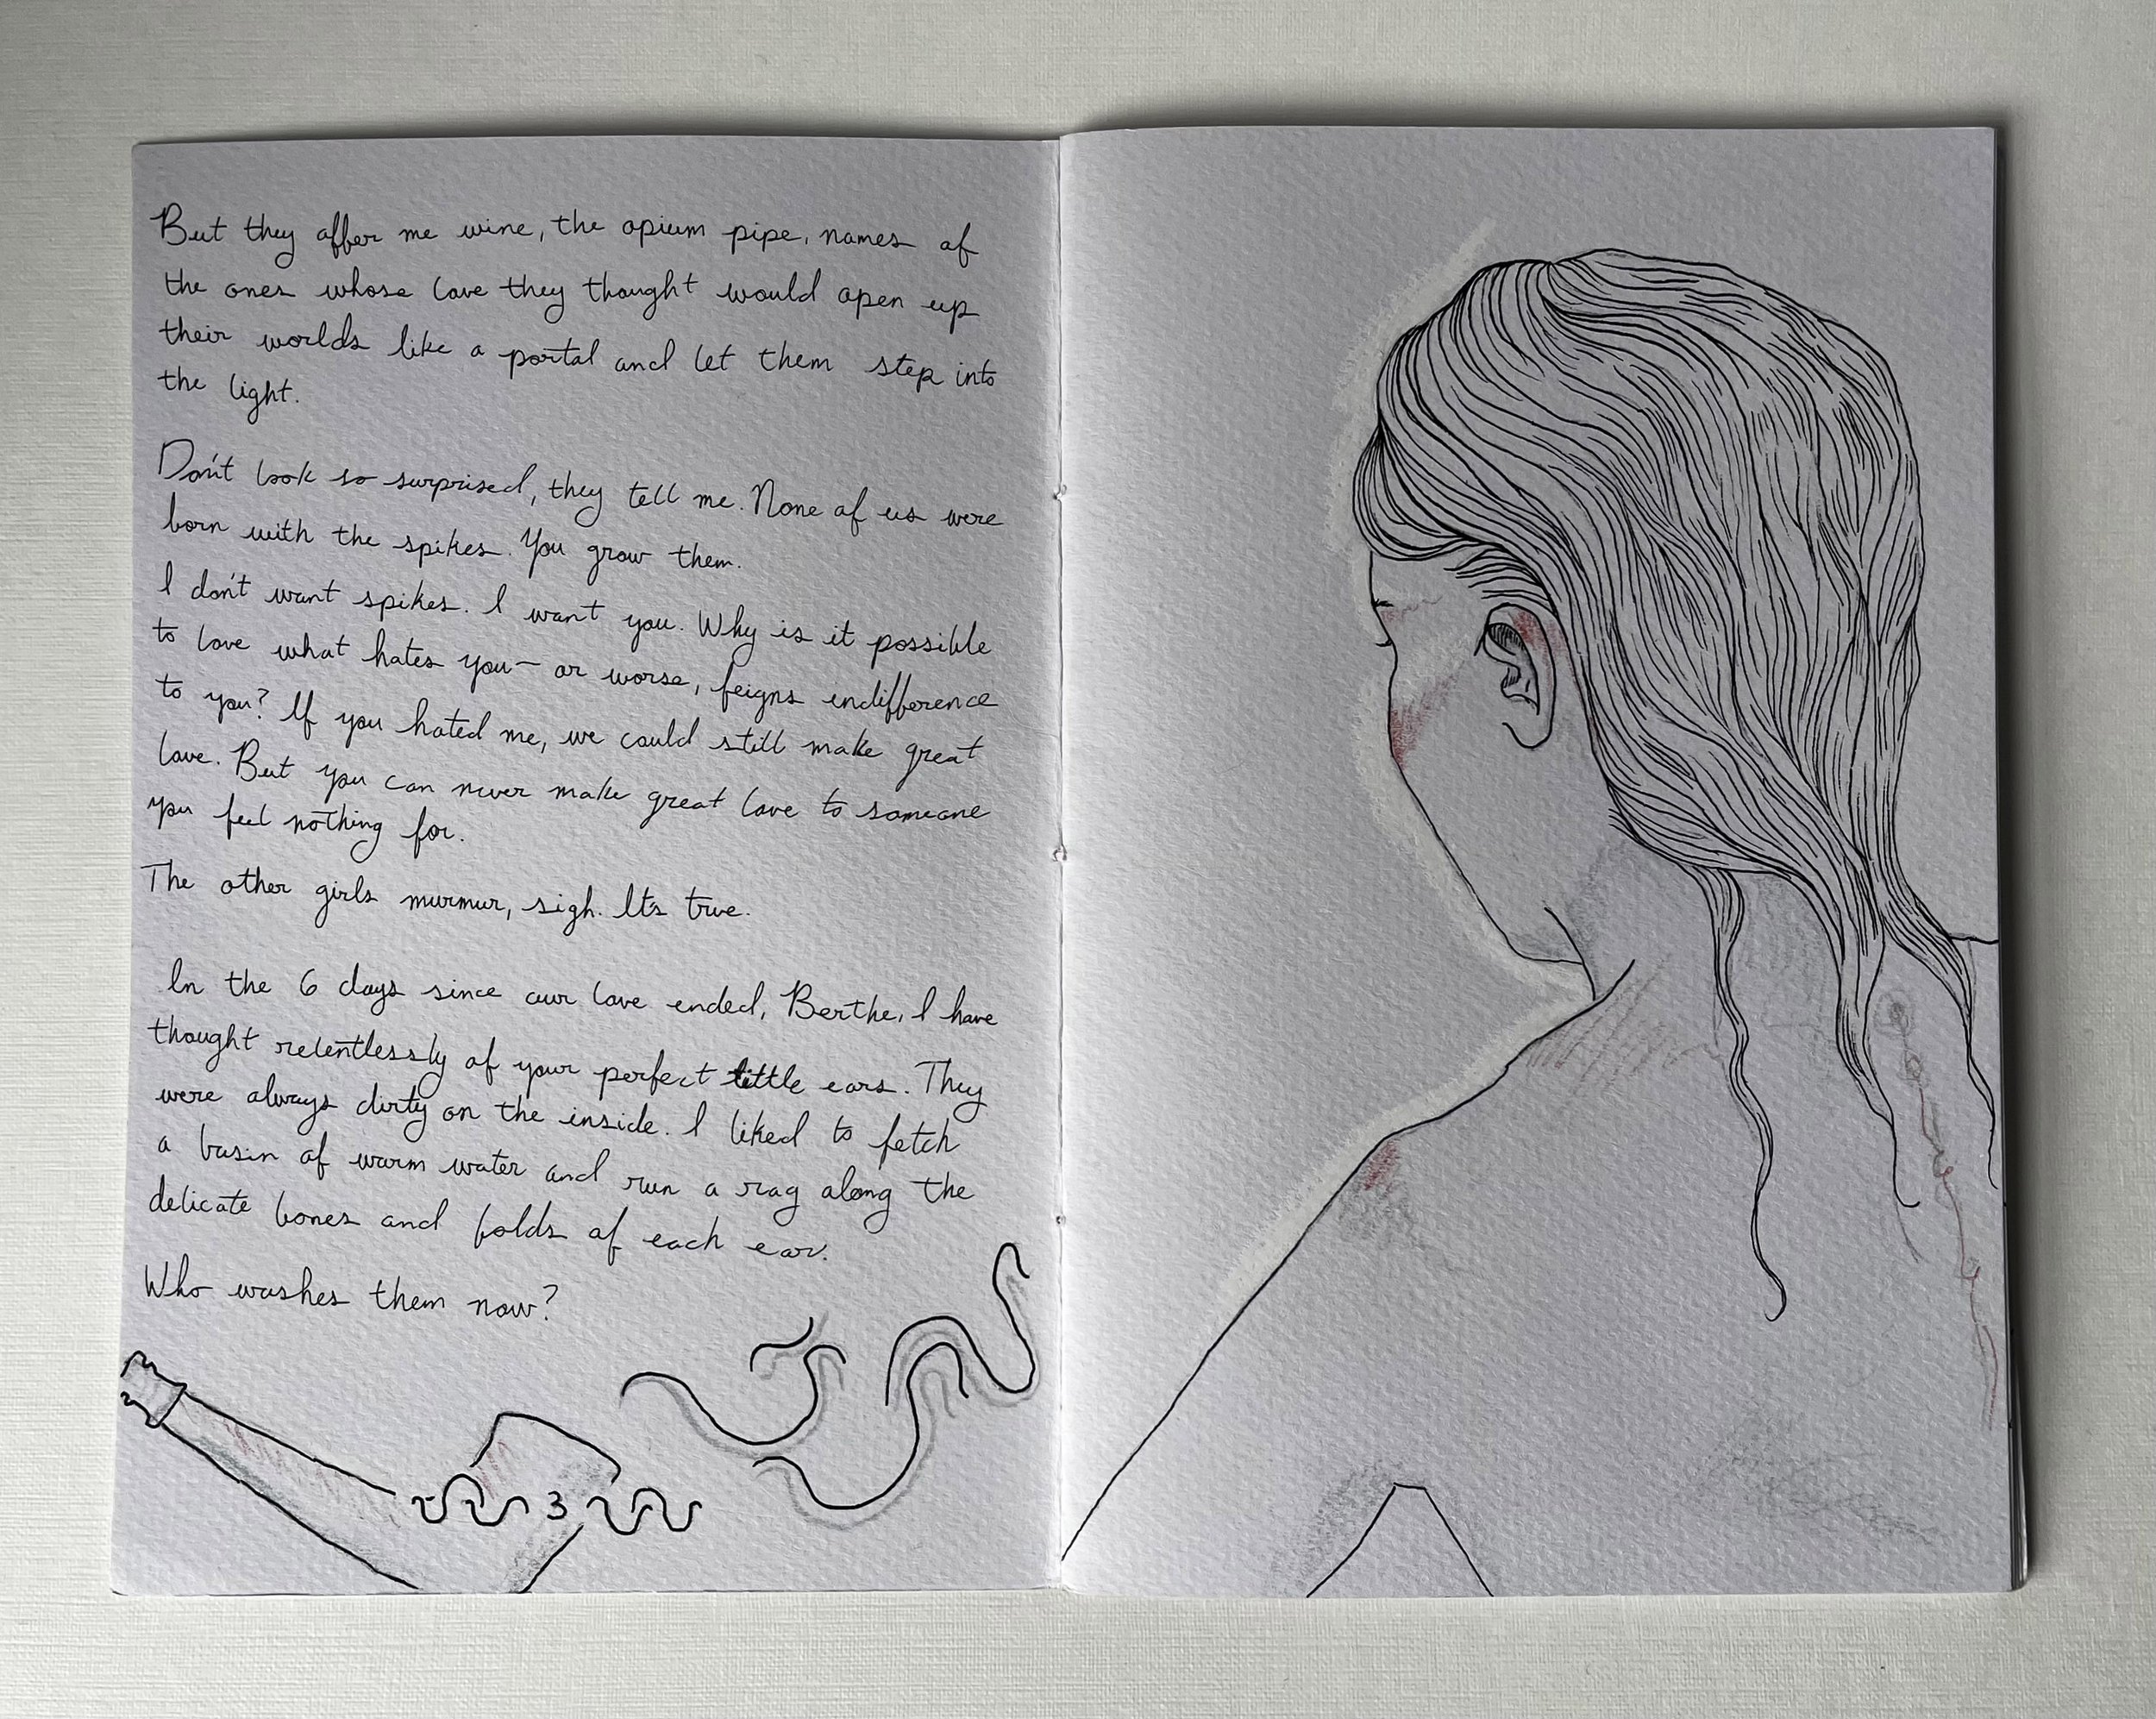 But they offer me wine, the opium pipe, names of
the ones whose love they thought would open up
their worlds like a portal and let them step into
the light.
Don't look so surprised, they tell me. None of us were
born with the spikes. You grow them.
I don't want spikes. I want you. Why is it possible
to love what hates you— or worse, feigns indifference
to you? If you hated me, we could still make great
love. But you can never make great love to someone
you feel nothing for.
The other girls murmur, sigh. It's true.
In the 6 days since our love ended, Berthe, I have
thought relentlessly of your perfect little ears. They
were always dirty on the inside. I liked to fetch
a basin of warm water and run a rag along the
delicate bones and folds of each ear.
Who washes them now?
3